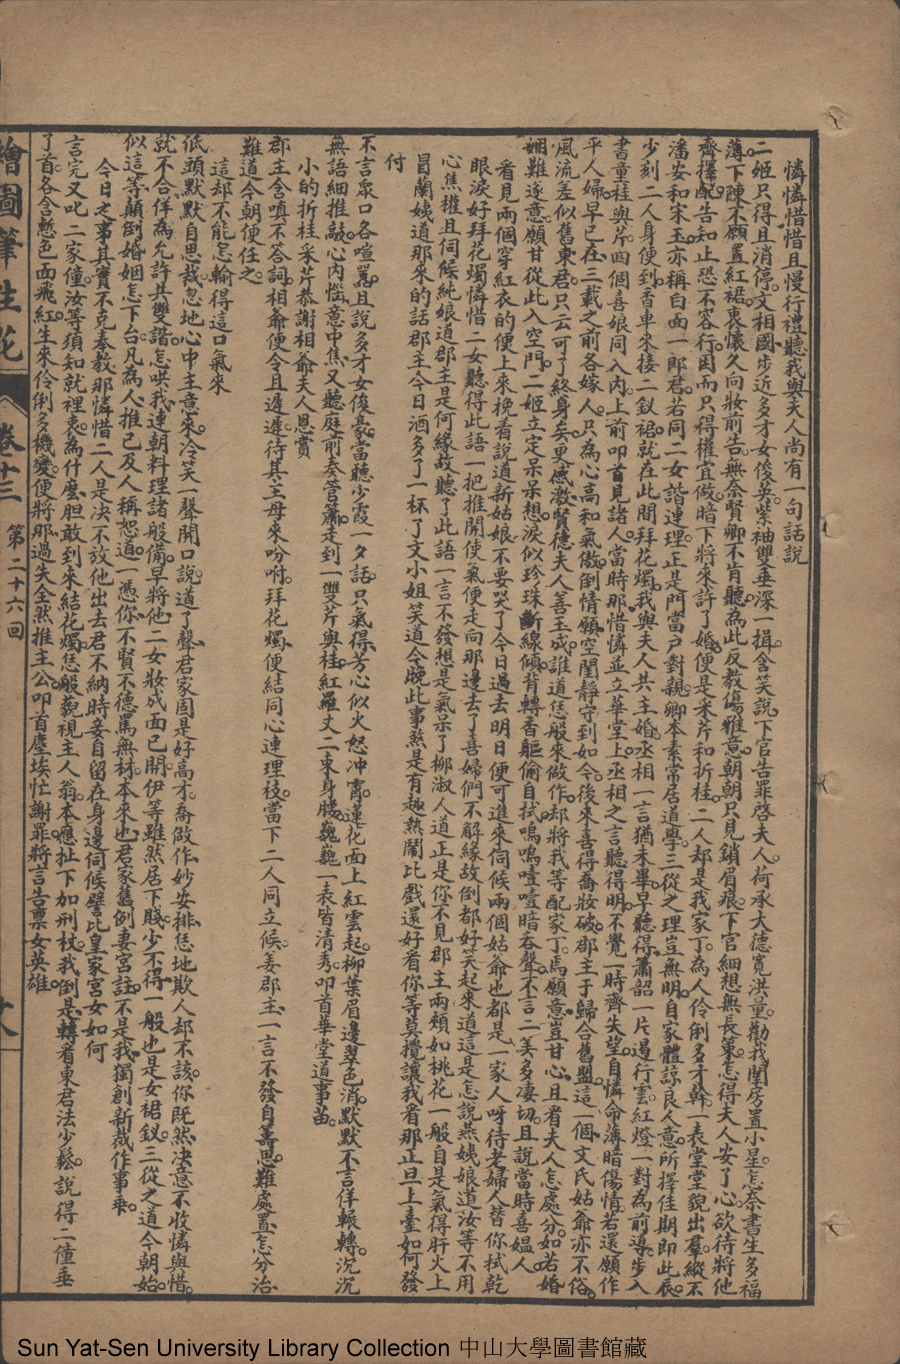 憐憐惜惜且慢行禮聽我與夫人尚有一句話說
二姬只得且消停文相國步近多才女俊英紫袖雙垂深一揖含笑說下官告罪啓夫人荷承大德寬洪量勸我閨房置小星怎奈書生多福
薄下陳不願置紅裙衷懷久向妝前告無奈賢卿不肯聽為此反教傷雅意朝朝只見鎖眉痕下官細想無長策怎得夫人安了心欲待將他
齊擇配告知止恐不容行因而只得權宜做暗下將來許了婚便是采芹和折桂二人却是我家丁為人伶俐多才幹一表堂堂貌出羣縱不
潘安和宋玉亦稱白面一郎君若同二女諧連理正是門當户對親卿本素常居道學三從之理豈無明自家體諒良人意所擇佳期即此辰
少刻二人身便到香車來接二釵裙就在此間拜花燭我與夫人共主婚丞相一言猶未畢早聽得簫韶一片遏行雲紅燈一對為前導步入
書童桂與芹四個喜娘同入內上前叩首見諸人當時那惜憐並立華堂上丞相之言聽得明不覺一時齊失望自憐命薄暗傷情若還願作
平人婦早已在三載之前各嫁人只為心高和氣傲倒情願空閨靜守到如今後來喜得喬妝破郡主于歸合舊盟這一個文氏姑爺亦不俗
風流差似舊東君只云可了終身矣更感激賢德夫人善玉成誰道恁般來做作却將我等配家丁焉願意豈甘心且看夫人怎處分如若婚
姻難逐意願甘從此入空門二姬立定呆呆想淚似珍珠斷線傾背轉香軀偷自拭嗚嗚噎噎暗吞聲不言二美多凄切且說當時喜媼人
看見兩個穿紅衣的便上來挽着說道新姑娘不要哭了今日過去明日便可進來伺候兩個姑爺也都是一家人呀待老婦人替你拭乾
眼淚好拜花燭憐惜二女聽得此語一把推開使氣便走向那邊去了喜婦們不解緣故倒都好笑起來道這是怎說燕姨娘道汝等不用
心焦權且伺候純娘道郡主是何緣故聽了此語一言不發想是氣呆了柳淑人道正是你不見郡主兩頰如桃花一般自是氣得肝火上
冒蘭姨道那來的話郡主今日酒多了一杯了文小姐笑道今晚此事煞是有趣熱鬧比戲還好看你等莫攪讓我看那正旦上臺如何發
付
不言衆口各喧罵且說多才女俊豪當聽少霞一夕話只氣得芳心似火怒冲霄蓮花面上紅雲起柳葉眉邊翠色消默默不言佯輾轉沉沉
無語細推敲心內惱意中焦又聽庭前奏管簫走到一雙芹與桂紅羅丈二束身腰巍巍一表皆清秀叩首華堂道事苗
小的折桂采芹恭謝相爺夫人恩賞
郡主含嗔不答詞相爺便令且遲遲待其主母來吩咐拜花燭便結同心連理枝當下二人同立候姜郡主一言不發自籌思難處置怎分治
難道今朝便任之
這却不能怎輸得這口氣來
低頭默默自思裁忽地心中主意來冷笑一聲開口說道了聲君家固是好高才喬做作妙安排恁地欺人却不該你既然决意不收憐與惜
就不合佯為允許共雙諧怎哄我連朝料理諸般備早將他二女妝成面已開伊等雖然居下賤少不得一般也是女裙釵三從之道今朝始
似這等顛倒婚姻怎下台凡為人推己及人稱恕道一憑你不賢不德罵無材本來也君家舊例妻宮註不是我獨創新裁作事乖
今日之事其實不克奉教那憐惜二人是决不放他出去君不納時妾自留在身邊伺候譬比皇家宮女如何
言完又叱二家僮汝等須知就裡衷為什麼胆敢到來結花燭恁般藐視主人翁本應扯下加刑杖我倒是轉看東君法少鬆說得二僮垂
了首各含慙色面飛紅生來伶俐多機變便將那過失全然推主公叩首塵埃忙謝罪將言告稟女英雄
繪圖筆生花 卷十三 第二十六回
Sun Yat-Sen University Library Collection 中山大學圖書館藏